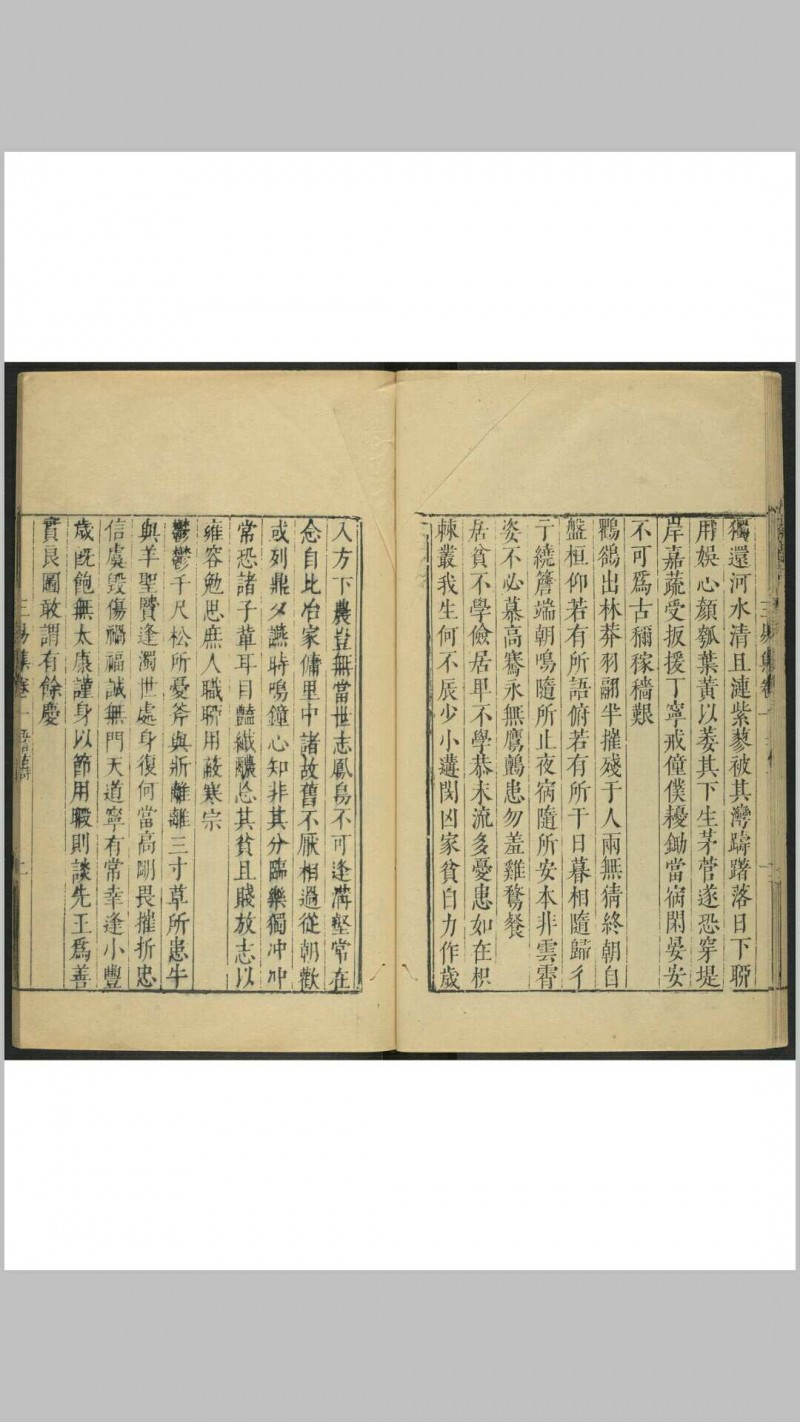 獨還河水清且漣紫蓼被其灣踌躇落日下聊
用娛心顏瓠葉黃以萎其下生茅菅遂恐穿堤
岸嘉蔬受扳援丁寧戒僮僕耰鋤當宿閑晏安
不可爲古稱稼穡艱
鸜鵒出林莽羽翮半摧殘于人兩無猜終朝自
盤桓仰若有所語俯若有所干日暮相隨歸彳
亍繞簷端朝鳴隨所止夜宿隨所安本非雲霄
姿不必慕高騫永無鷹鸇患勿羞雞鶩餐
居貧不學儉居卑不學恭末流多憂患如在枳
棘叢我生何不辰少小遘閔凶家貧自力作歲
入方下農豈無當世志鳳鳥不可逢溝壑常在
念自比冶家傭里中諸故舊不厭相過從朝歡
或列鼎夕讌時鳴鐘心知非其分臨樂獨冲冲
常恐諸子輩耳目豔纖醲忘其貧且賤放志以
雍容勉思庶人職聊用蔽寒宗
鬱鬱千尺松所憂斧與斨離離三寸草所患牛
與羊聖贒逢濁世處身復何當高剛畏摧折忠
信虞毀傷禍福誠無門天道寧有常幸逢小豐
歲旣飽無太康謹身以節用暇則談先王爲善
實良圖敢謂有餘慶
三易集卷一